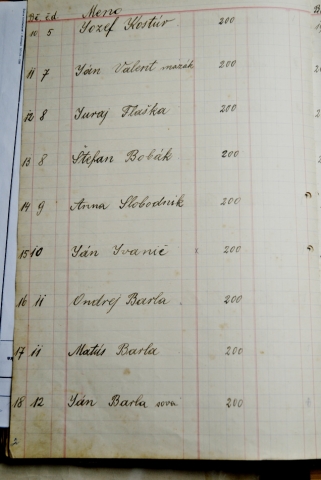 Bč. čd Meno
10 5 Jozef Kostúr 200
11 7 Ján Valent mazák 200
12 8 Juraj Fluška 200
13 8 Štefan Bobák 200
14 9 Anna Slobodnik 200
15 10 Ján Ivanič x 200
16 11 Ondrej Barla 200
17 11 Matúš Barla 200
18 12 Ján Barla sova 200
2